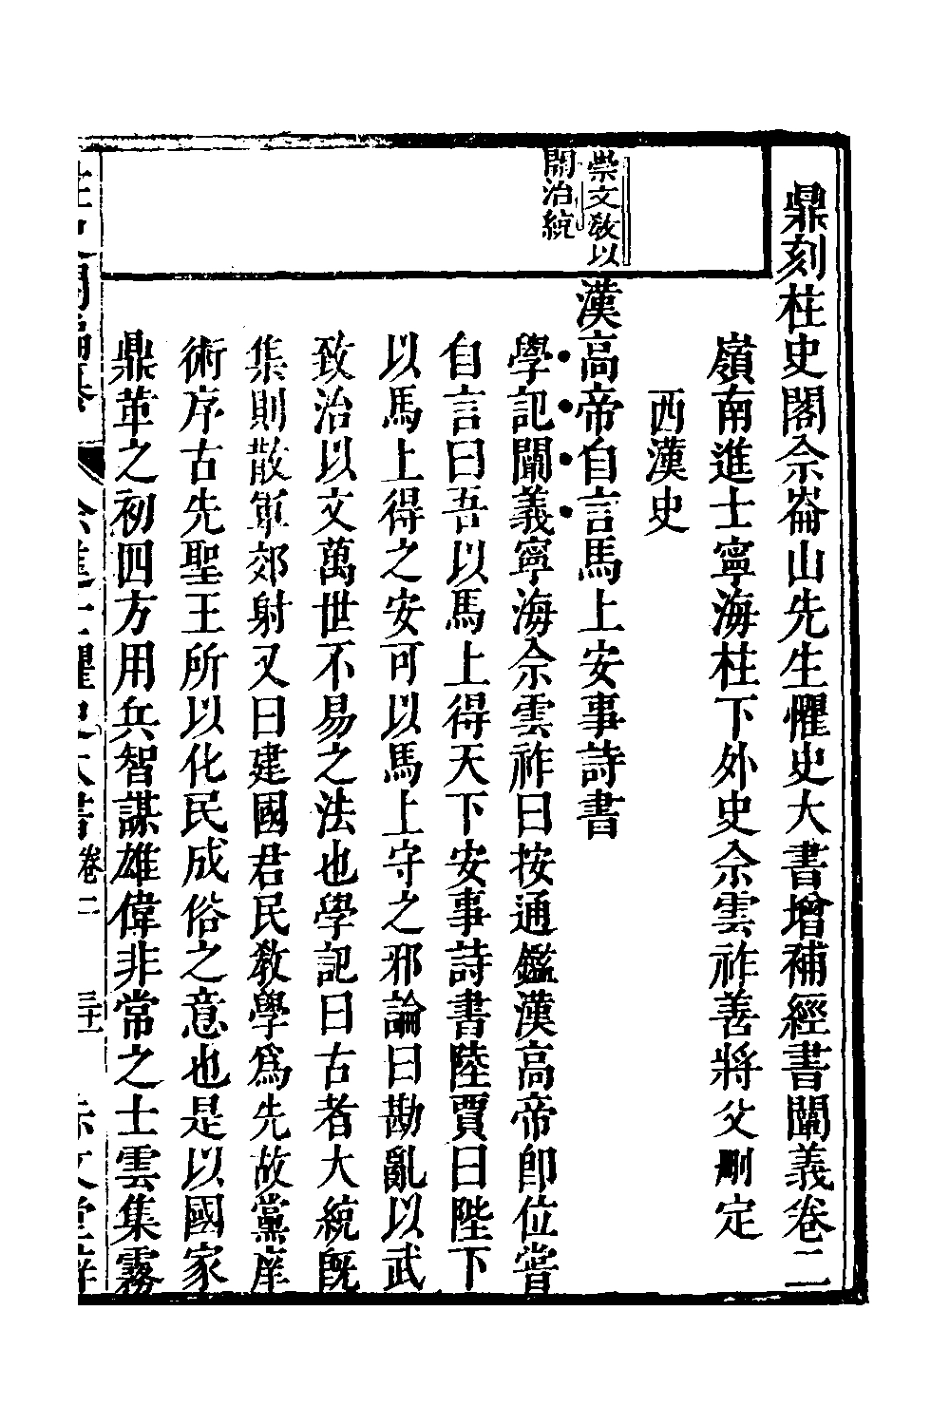 鼎刻柱史閣佘崙山先生懼史大書增補經書闡義卷二
嶺南進士寧海柱下外史佘雲祚善將父刪定
西漢史
崇文敎以
開治統
漢高帝自言馬上安事詩書
學記闡義寧海佘雲祚曰按通鑑漢高帝卽位嘗
自言曰吾以馬上得天下安事詩書陸賈曰陛下
以馬上得之安可以馬上守之邪論曰勘亂以武
致治以文萬世不易之法也學記曰古者大統旣
集則散軍郊射又曰建國君民敎學爲先故黨庠
術序古先聖王所以化民成俗之意也是以國家
鼎革之初四方用兵智謀雄偉非常之士雲集霧
卷二